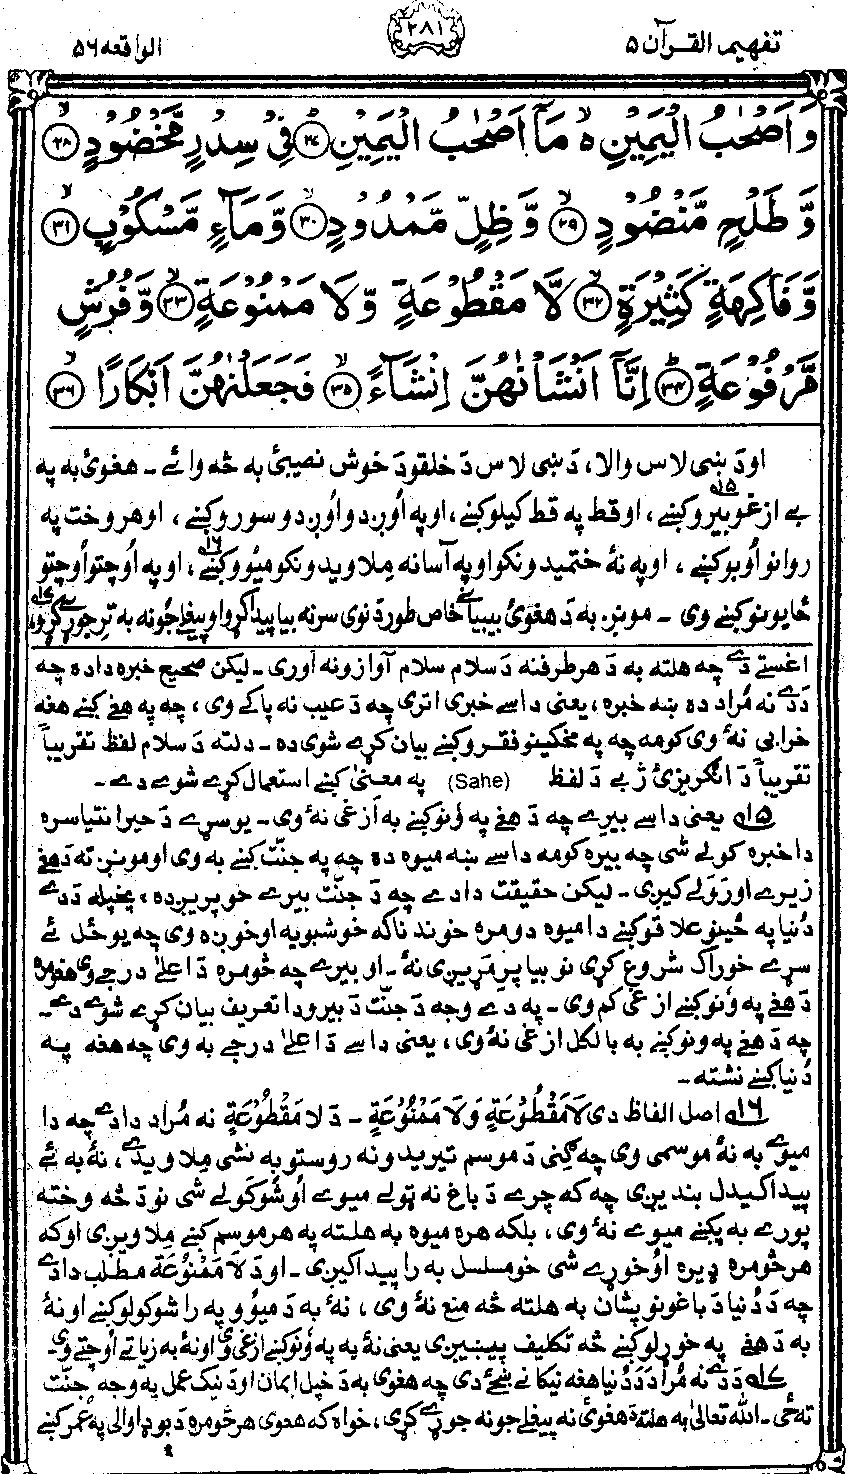 تفهیم القرآن ۵
۲۸۱
الواقعه ۵۶
وَاَصْحٰبُ الْيَمِيْنِ ەۙ مَاۤ اَصْحٰبُ الْيَمِيْنِ ؕ۝۲۷ فِيْ سِدْرٍ مَّخْضُوْدٍ ۙ۝۲۸
وَّ طَلْحٍ مَّنْضُوْدٍ ۙ۝۲۹ وَّظِلٍّ مَّمْدُوْدٍ ۙ۝۳۰ وَّمَآءٍ مَّسْكُوْبٍ ۙ۝۳۱
وَّفَاكِهَةٍ كَثِيْرَةٍ ۙ۝۳۲ لَّا مَقْطُوْعَةٍ وَّلَا مَمْنُوْعَةٍ ۙ۝۳۳ وَّفُرُشٍ
مَّرْفُوْعَةٍ ؕ۝۳۴ اِنَّاۤ اَنْشَاْنٰهُنَّ اِنْشَآءً ۙ۝۳۵ فَجَعَلْنٰهُنَّ اَبْكَارًا ۙ۝۳۶
او دَ ښي لاس والا، دَ ښي لاس دَ خلقو دَ خوش نصيبۍ به څه وائے ـ هغوي به په
بے ازغو بيرو کښے ۱۵، او قط په قط کيلو کښے، او په اُوږدو اُوږدو سورو کښے، او هر وخت په
روانو اُوبو کښے، او په نۀ ختميدونکو او په آسانه مِلاويدونکو ميوو کښے ۱۶، او په اُوچتو اُوچتو
ځايونو کښے وي ـ مونږ به دَ هغوي بيبيانے خاص طور دَ نوي سر نه بيا پيدا کړو او پيغلے جونه به ترے جوړے کړو ۱۷
اغستے دے چه هلته به دَ هر طرف نه دَ سلام سلام آوازونه اوري ـ ليکن صحيح خبره دا ده چه
دَدے نه مُراد ده ښه خبره، يعني داسے خبري اتري چه دَ عيب نه پاکے وي، چه په هغے کښے هغه
خرابي نۀ وي کومه چه په مخکينو فقرو کښے بيان کړے شوي ده ـ دلته دَ سلام لفظ تقريباً
تقريباً دَ انګريزئ ژبے دَ لفظ (Sahe) په معنیٰ کښے استعمال کړے شوے دے ـ
۱۵ يعني داسے بيرے چه دَ هغے په وَنو کښے به اَزغي نۀ وي ـ يو سړے دَ حيرانتيا سره
دا خبره کولے شي چه بيره کومه داسے ښه ميوه ده چه په جنّت کښے به وي او مونږ ته دَ هغے
زيرے اورَولے کيږي ـ ليکن حقيقت دا دے چه دَ جنّت بيرے خو پريږده، پخپله دَدے
دُنيا په ځينو علاقو کښے دا ميوه دومره خوندناکه خوشبويه او خوږه وي چه يو ځل ئے
سړے خوراک شروع کړي نو بيا پرے مړيږي نۀ ـ او بيرے چه څومره دَ اعلیٰ درجے وي هغومره
دَ هغے په وَنو کښے ازغي کم وي ـ په دے وجه دَ جنّت دَ بيرو دا تعريف بيان کړے شوے دے ـ
چه دَ هغے په ونو کښے به بالکل ازغي نۀ وي، يعني داسے دَ اعلیٰ درجے به وي چه هغه په
دُنيا کښے نشته ـ
۱۶ اصل الفاظ دي لَا مَقْطُوْعَةٍ وَّلَا مَمْنُوْعَةٍ ـ دَ لا مَقْطُوْعَةٍ نه مُراد دا دے چه دا
ميوے به نۀ موسمي وي چه ګني دَ موسم تيريدو نه روستو به نشي مِلاويدے، نۀ به ئے
پيدا کيدل بنديږي چه که چرے دَ باغ نه ټولے ميوے اُوشوکولے شي نو دَ څه وخته
پورے به پکښے ميوے نۀ وي، بلکه هره ميوه به هلته په هر موسم کښے مِلاويږي او که
هر څومره ډيره اُوخوړے شي خو مسلسل به را پيدا کيږي ـ او دَ لَا مَمْنُوْعَة مطلب دا دے
چه دَ دُنيا دَ باغونو پشان به هلته څه منع نۀ وي، نۀ به دَ ميوو په را شوکولو کښے او نۀ
به دَ هغے په خوړلو کښے څه تکليف پيښيږي يعني نۀ به په وَنو کښے ازغي وي او نۀ به زياتے اُوچتے وي ـ
۱۷ دَدے نه مُراد دَ دُنيا هغه نيکانے ښځے دي چه هغوي به دَ خپل ايمان او دَ نيک عمل په وجه جنّت
ته ځي ـ الله تعالیٰ به هلته دَ هغوي نه پيغلے جونه جوړے کړي، خواه که هغوي هر څومره دَ بوډاوالي په عُمر کښے